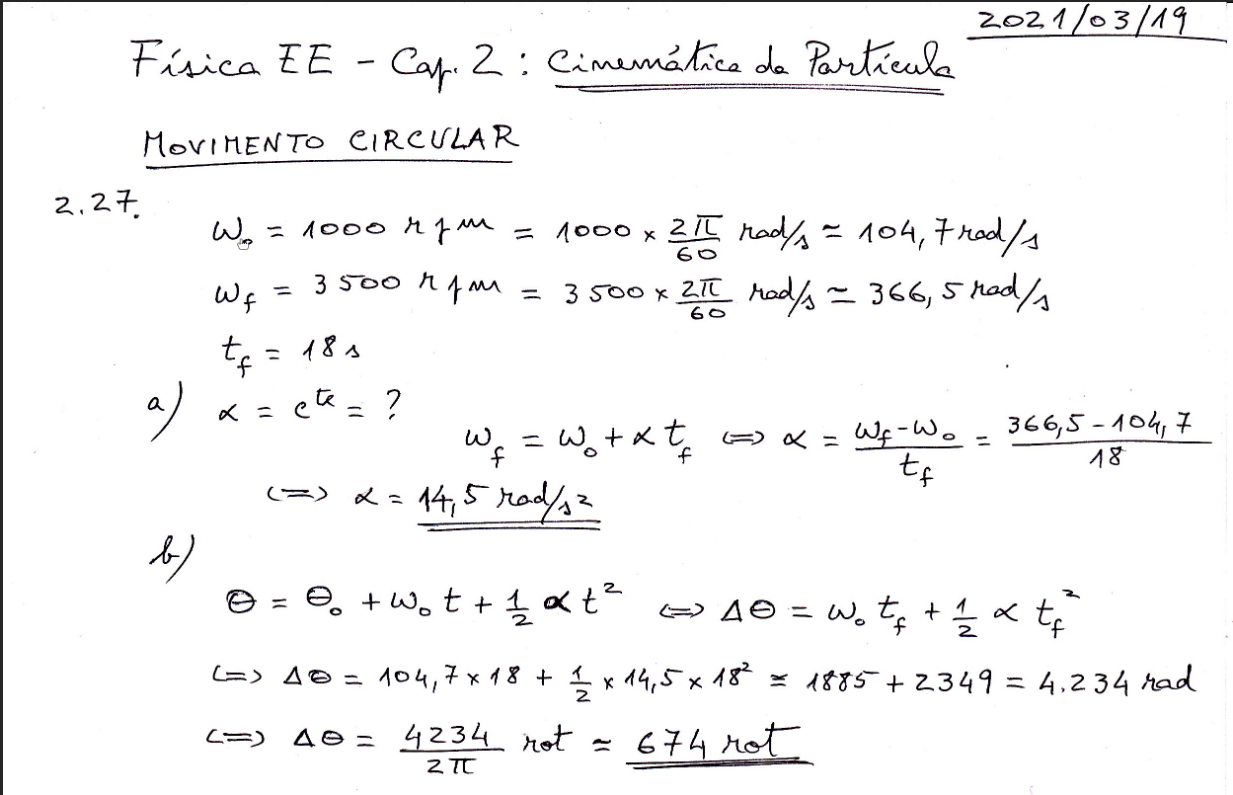 2021/03/19
Física EE - Cap. 2 : Cinemática da Partícula
MOVIMENTO CIRCULAR
2.27.
ω₀ = 1000 rpm = 1000 × 2π/60 rad/s ≃ 104,7 rad/s
ωf = 3500 rpm = 3500 × 2π/60 rad/s ≃ 366,5 rad/s
tf = 18 s
a) α = cte = ?
ωf = ω₀ + α tf <=> α = (ωf - ω₀)/tf = (366,5 - 104,7)/18
<=> α = 14,5 rad/s²
b)
θ = θ₀ + ω₀ t + 1/2 α t² <=> Δθ = ω₀ tf + 1/2 α tf²
<=> Δθ = 104,7 × 18 + 1/2 × 14,5 × 18² ≃ 1885 + 2349 = 4.234 rad
<=> Δθ = 4234/2π rot ≃ 674 rot